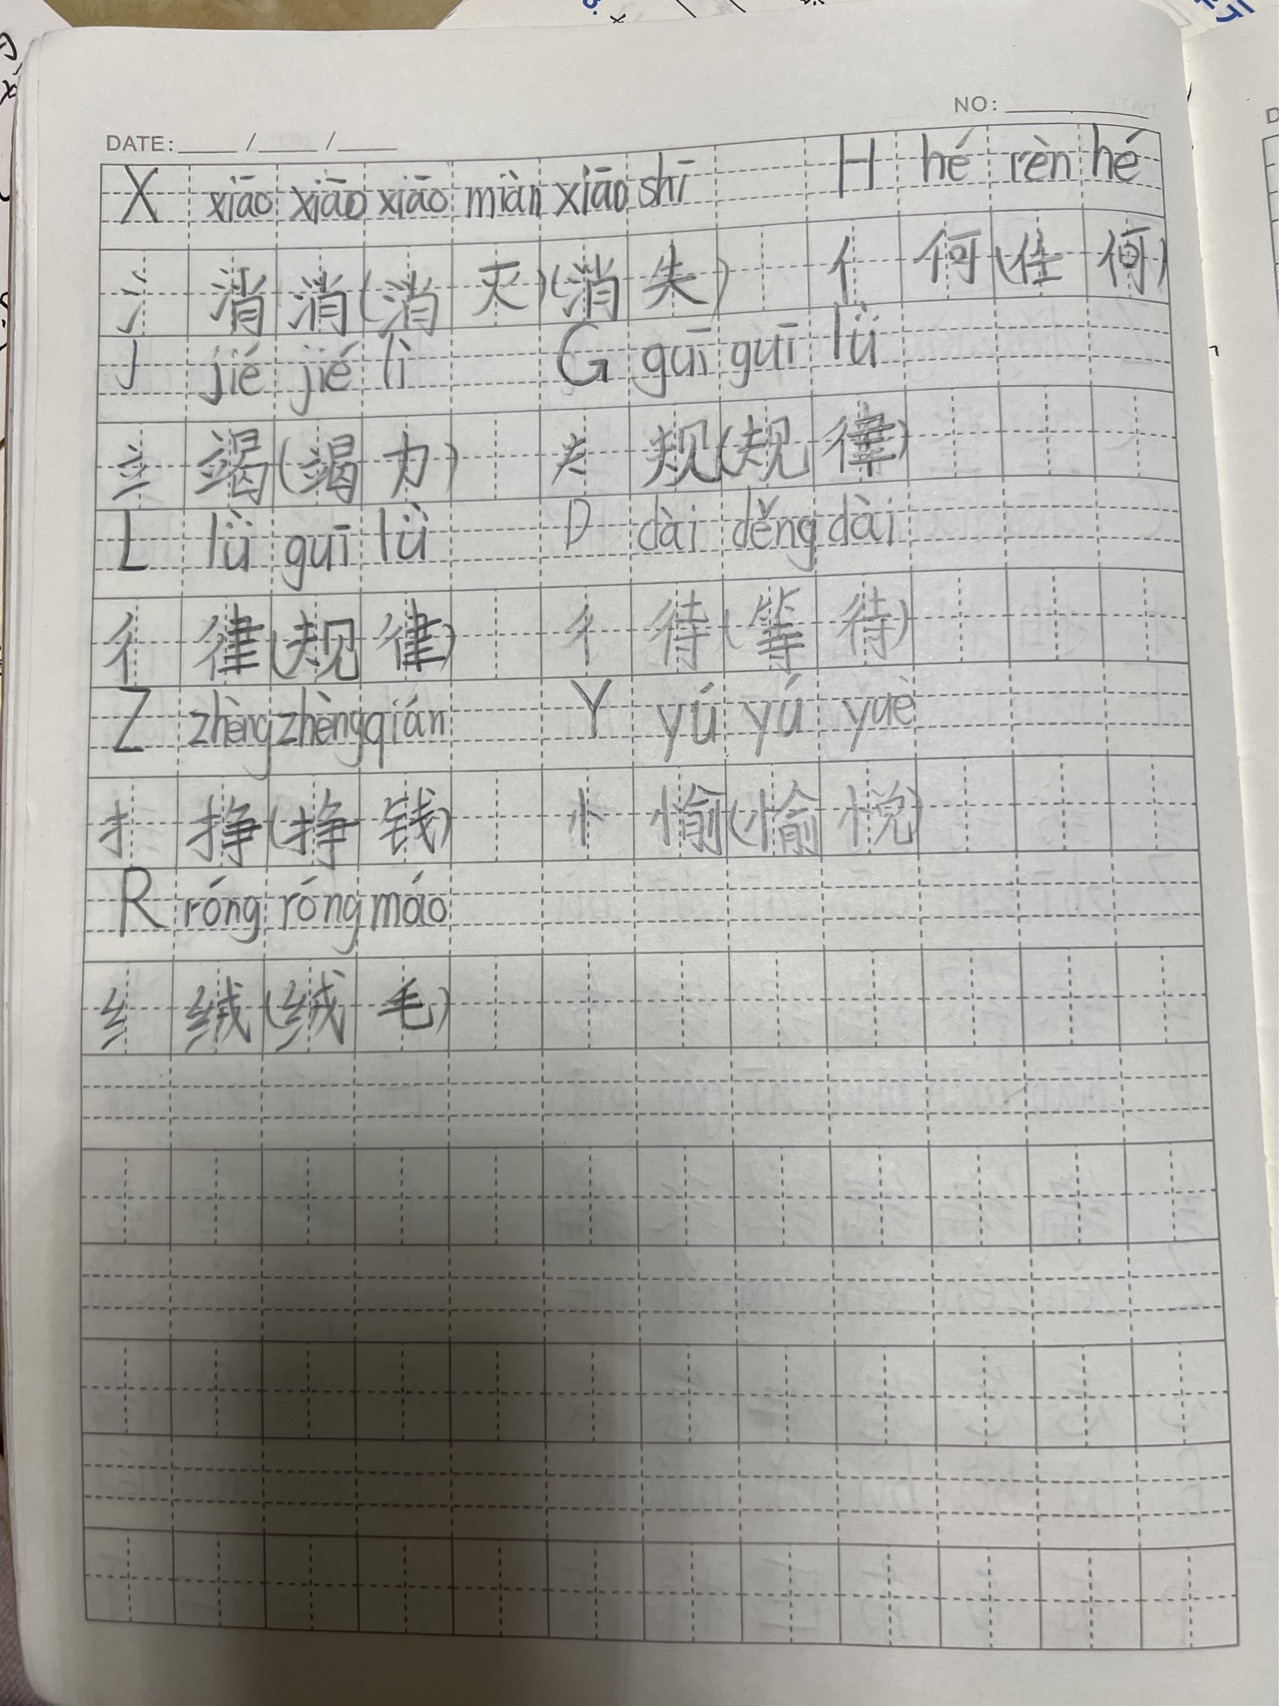 NO:
DATE: / /
X xiāo xiāo xiāo miàn xiāo shī H hé rèn hé
氵 消 消(消 灭)(消 失) 亻 何(任 何)
J jié jié lì G guī guī lǜ
立 竭(竭 力) 夫 规(规 律)
L lǜ guī lǜ D dài děng dài
彳 律(规 律) 彳 待(等 待)
Z zhèng zhèng qián Y yú yú yuè
扌 挣(挣 钱) 忄 愉(愉 悦)
R róng róng máo
纟 绒(绒 毛)